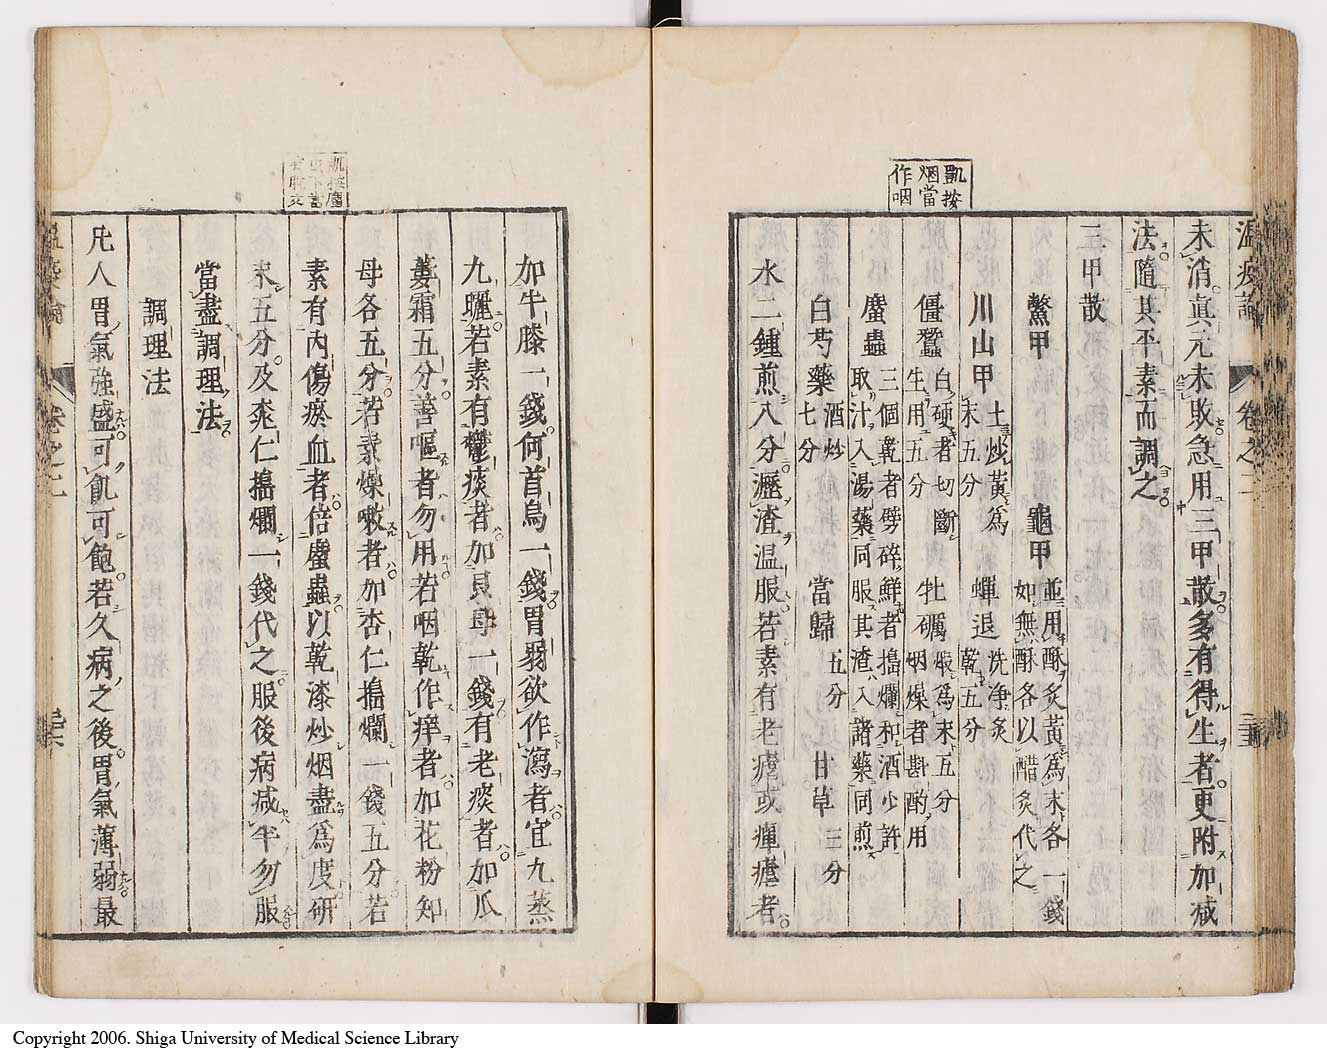 凱按
烟當
作咽
温疫論
卷之
未消真元未敗急用三甲散多有得生者更附加減
法隨其平素而調之
三甲散
鱉甲 龜甲 並用酥炙黃爲末各一錢
如無酥各以醋炙代之
川山甲 土炒黃爲
末五分 蟬退 洗淨炙
乾五分
僵蠶 白硬者切斷
生用五分 牡礪 煅爲末五分
烟燥者斟酌用
䗪蟲 三個乾者劈碎鮮者搗爛和酒少許
取汁入湯藥同服其渣入諸藥同煎
白芍藥 酒炒
七分 當歸 五分 甘草 三分
水二鍾煎八分瀝渣温服若素有老瘧或瘅瘧者
加牛膝一錢何首烏一錢胃弱欲作瀉者宜九蒸
九曬若素有鬱痰者加貝母一錢有老痰者加瓜
蔞霜五分善嘔者勿用若咽乾作痒者加花粉知
母各五分若素燥嗽者加杏仁搗爛一錢五分若
素有內傷瘀血者倍䗪蟲以乾漆炒烟盡爲度研
末五分及桃仁搗爛一錢代之服後病減半勿服
當盡調理法
調理法
凡人胃氣強盛可飢可飽若久病之後胃氣薄弱最
Copyright 2006. Shiga University of Medical Science Library